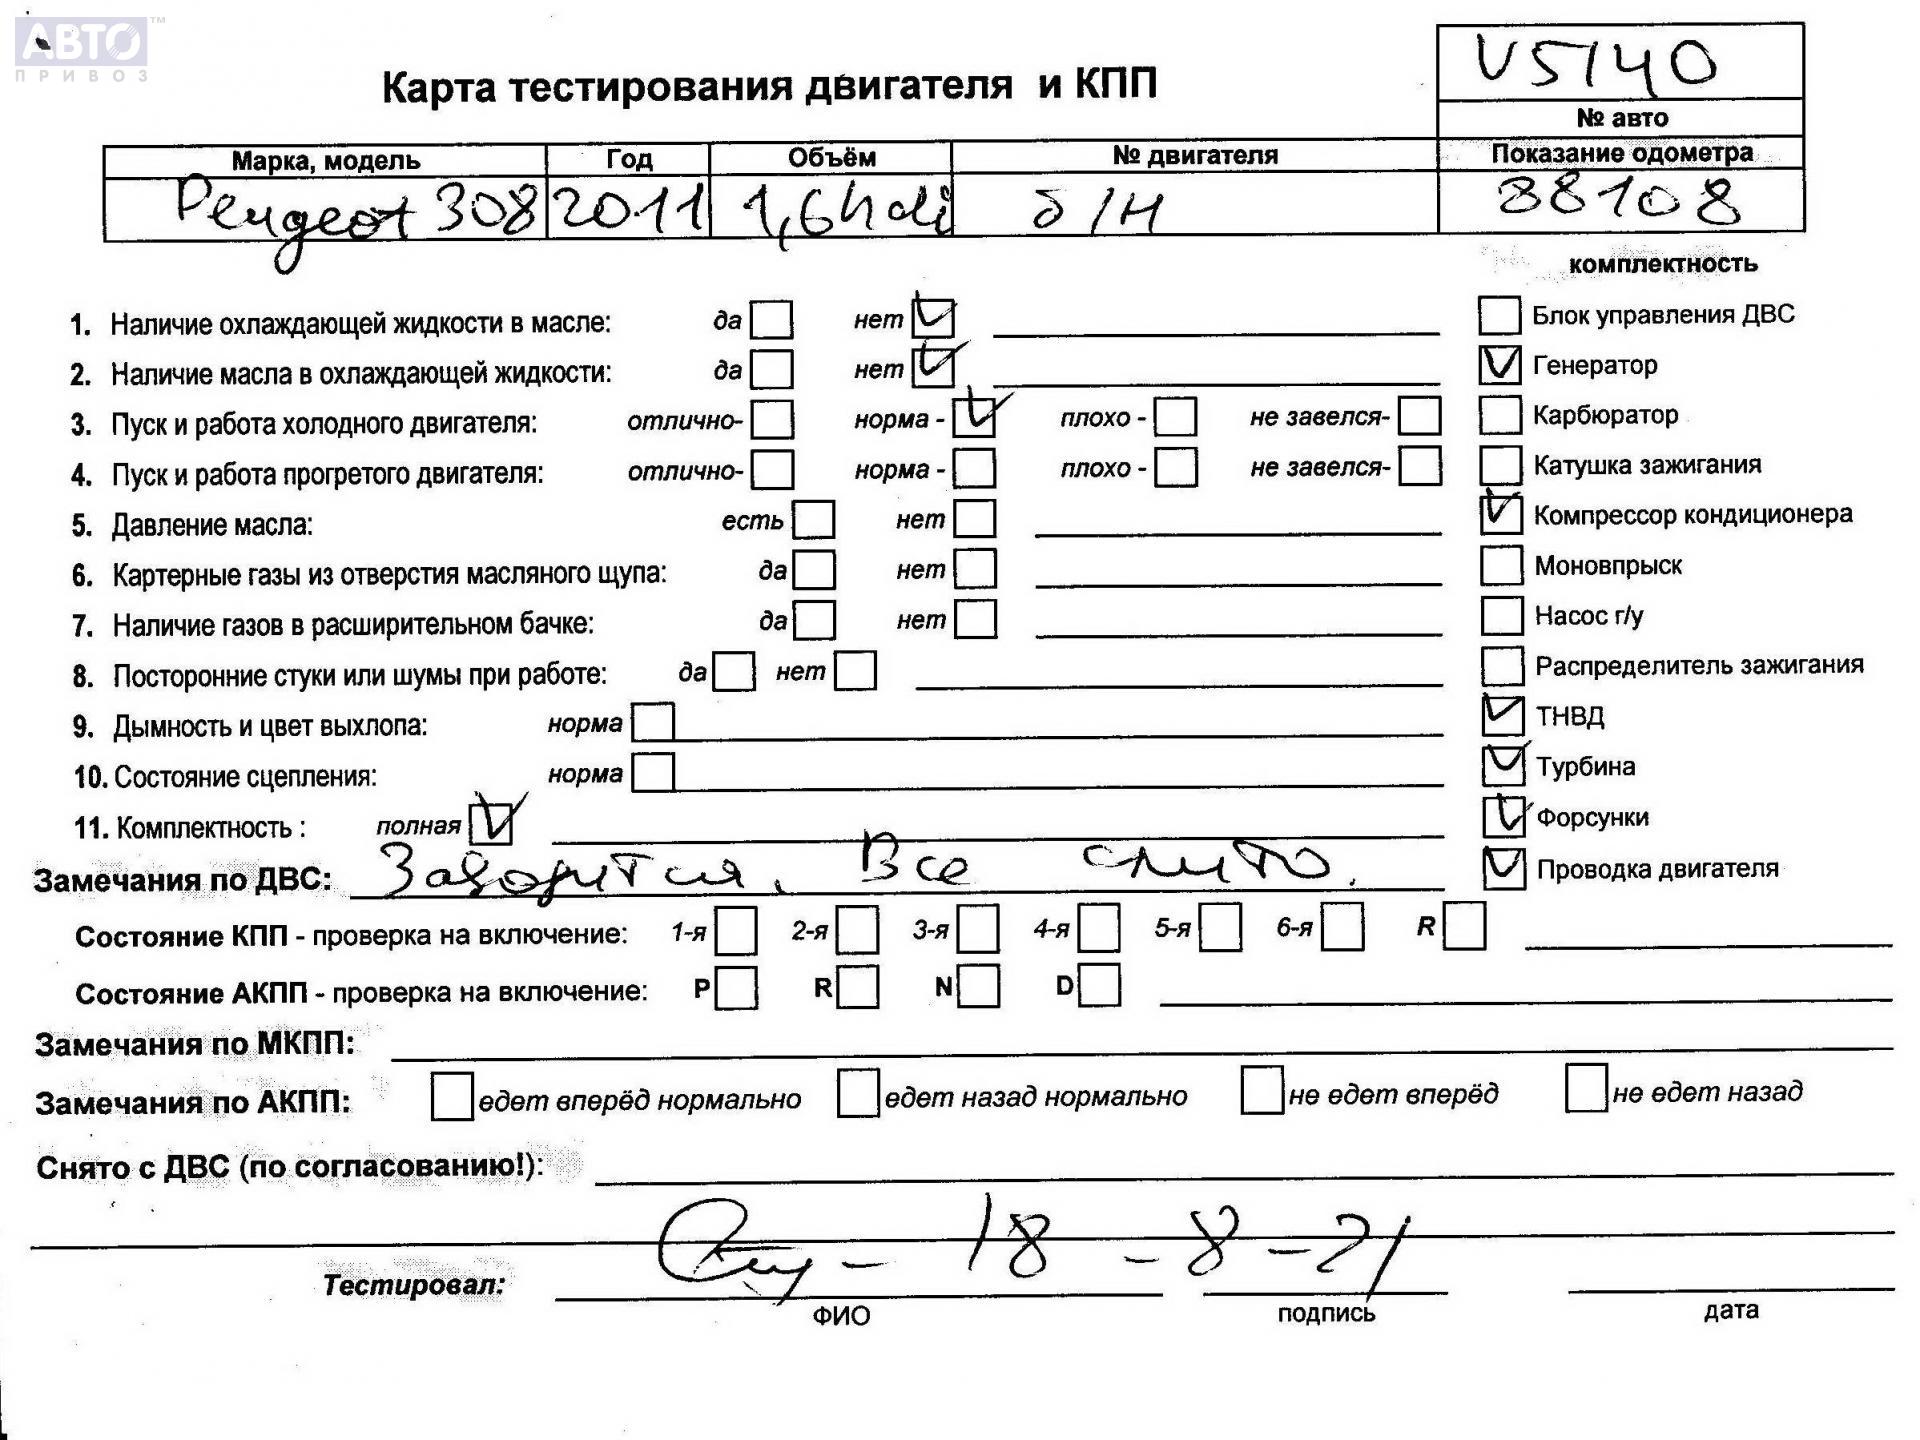 АВТО™
ПРИВОЗ
V5140
Карта тестирования двигателя и КПП
№ авто
Марка, модель Год Объём № двигателя Показание одометра
Peugeot 308 2011 1,6 hdi б/н 88108
комплектность
1. Наличие охлаждающей жидкости в масле: да нет Блок управления ДВС
2. Наличие масла в охлаждающей жидкости: да нет Генератор
3. Пуск и работа холодного двигателя: отлично- норма - плохо - не завелся- Карбюратор
4. Пуск и работа прогретого двигателя: отлично- норма - плохо - не завелся- Катушка зажигания
5. Давление масла: есть нет Компрессор кондиционера
6. Картерные газы из отверстия масляного щупа: да нет Моновпрыск
7. Наличие газов в расширительном бачке: да нет Насос г/у
8. Посторонние стуки или шумы при работе: да нет Распределитель зажигания
9. Дымность и цвет выхлопа: норма ТНВД
10. Состояние сцепления: норма Турбина
11. Комплектность : полная Форсунки
Замечания по ДВС: Заводится. Все слито. Проводка двигателя
Состояние КПП - проверка на включение: 1-я 2-я 3-я 4-я 5-я 6-я R
Состояние АКПП - проверка на включение: P R N D
Замечания по МКПП:
Замечания по АКПП: едет вперёд нормально едет назад нормально не едет вперёд не едет назад
Снято с ДВС (по согласованию!):
Тестировал: - 18 - 8 - 21
ФИО подпись дата